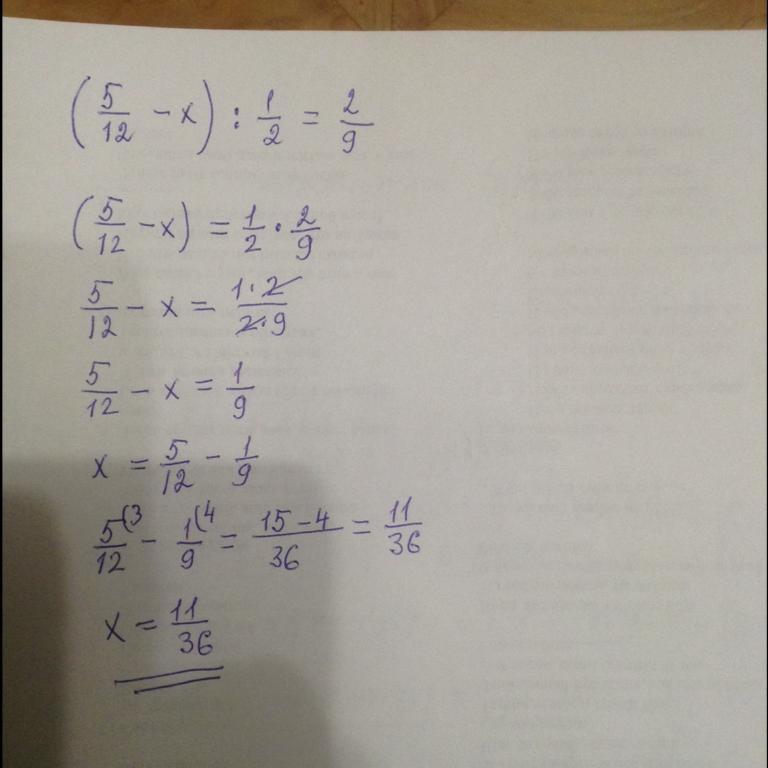 (5/12 - x) : 1/2 = 2/9
(5/12 - x) = 1/2 · 2/9
5/12 - x = 1·2/2·9
5/12 - x = 1/9
x = 5/12 - 1/9
5/12 (3 - 1/9 (4 = 15-4/36 = 11/36
x = 11/36